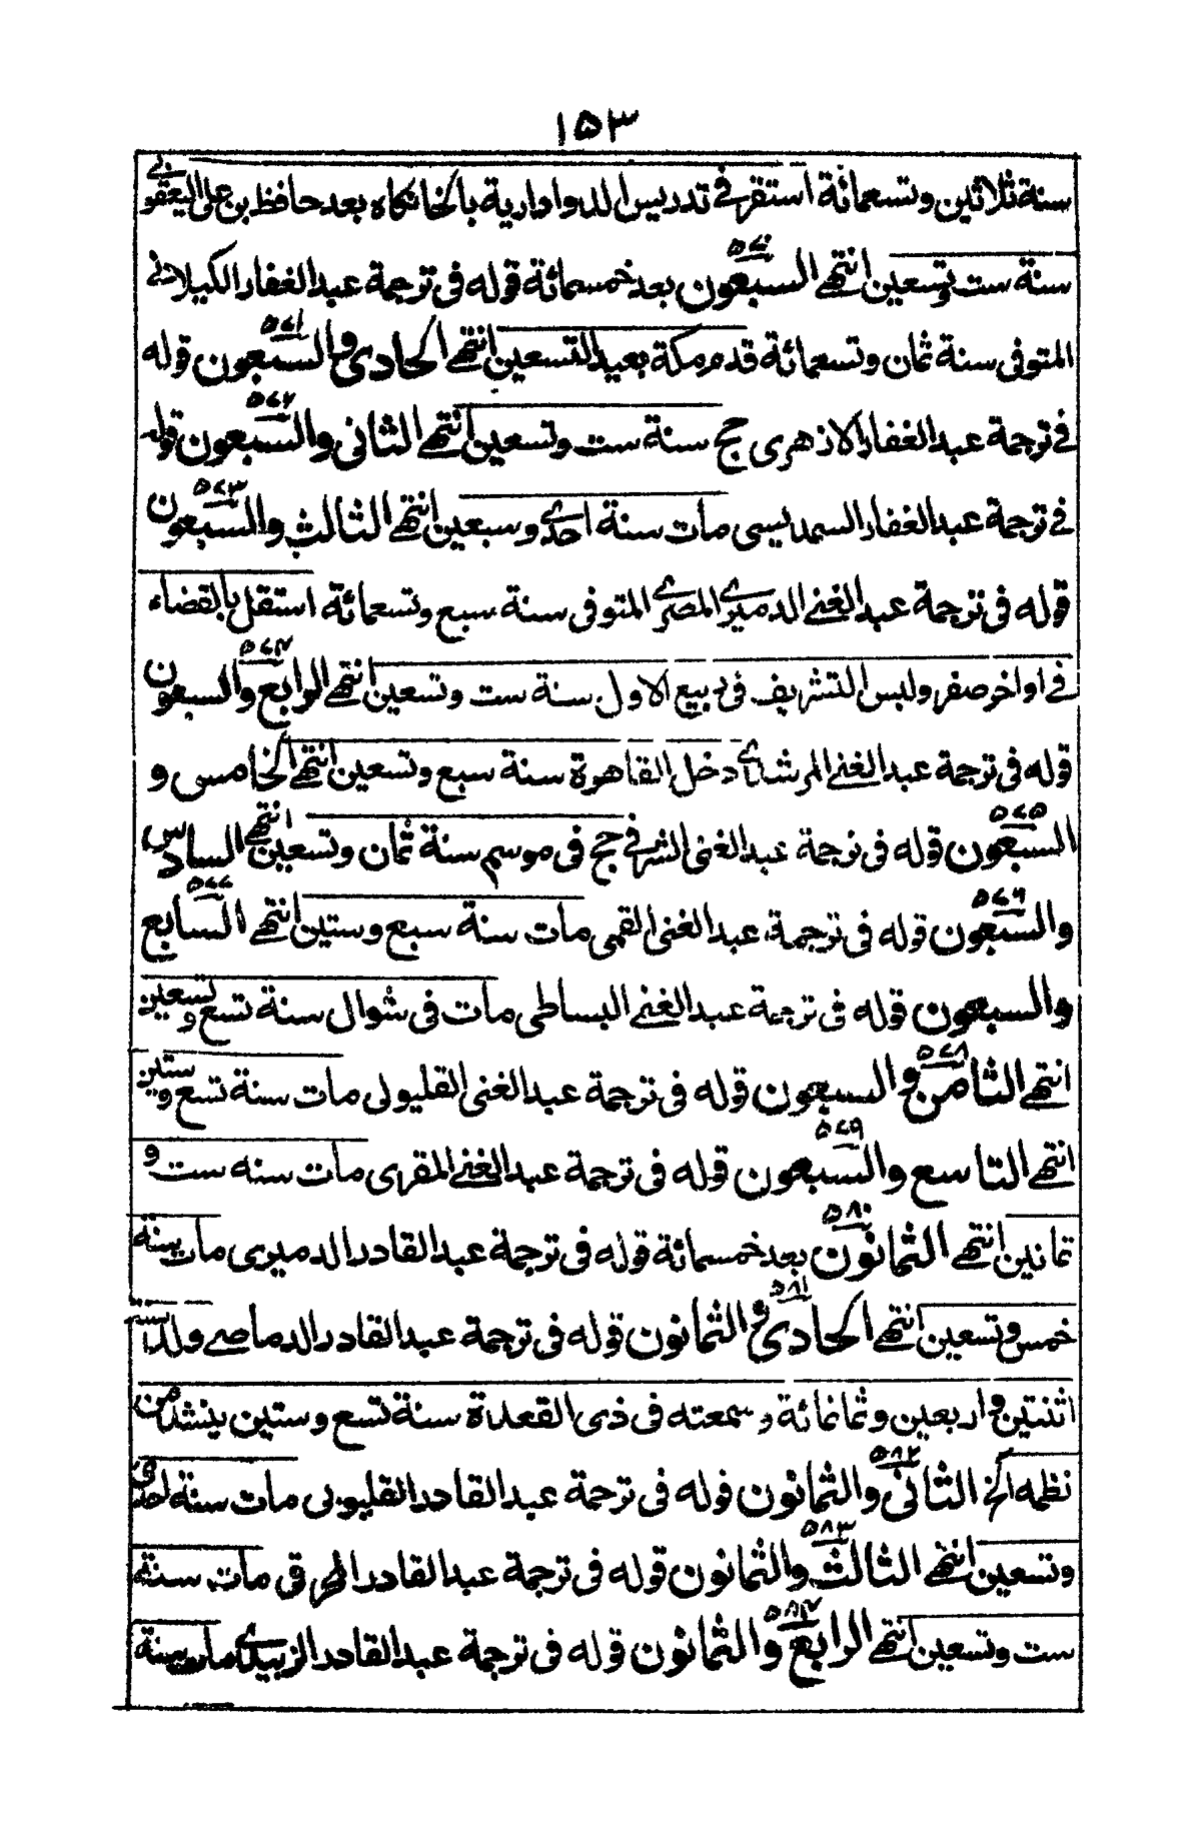 ١٥٣
سنة ثلاثين وتسعمائة استقر في تدريس الدوادارية بالخانكاه بعد حافظ بن على اليعقوبي
سنة ست وتسعين انتهى السبعون ٥٧٠ بعد خمسمائة قوله فى ترجمة عبد الغفار الكيلانى
المتوفى سنة ثمان وتسعمائة قدم مكة بعيد التسعين انتهى الحادى والسبعون ٥٧١ قوله
في ترجمة عبد الغفار الازهرى حج سنة ست وتسعين انتهى الثانى والسبعون ٥٧٢ قوله
في ترجمة عبد الغفار السمديسى مات سنة احدى وسبعين انتهى الثالث والسبعون ٥٧٣
قوله فى ترجمة عبد الغنى الدميرى المصرى المتوفى سنة سبع وتسعمائة استقل بالقضاء
في اواخر صفر ولبس التشريف فى ربيع الاول سنة ست وتسعين انتهى الرابع والسبعون ٥٧٤
قوله فى ترجمة عبد الغنى المرشدى دخل القاهرة سنة سبع وتسعين انتهى الخامس و
السبعون ٥٧٥ قوله فى ترجمة عبد الغنى الشرفى حج فى موسم سنة ثمان وتسعين انتهى السادس
والسبعون ٥٧٦ قوله فى ترجمة عبد الغنى القمى مات سنة سبع وستين انتهى السابع ٥٧٧
والسبعون قوله فى ترجمة عبد الغنى البساطى مات فى شوال سنة تسع وتسعين
انتهى الثامن والسبعون ٥٧٨ قوله فى ترجمة عبد الغنى القليوبى مات سنة تسع وستين
انتهى التاسع والسبعون ٥٧٩ قوله فى ترجمة عبد الغنى المقرى مات سنه ست و
ثمانين انتهى الثمانون ٥٨٠ بعد خمسمائة قوله فى ترجمة عبد القادر الدميرى مات سنة
خمس وتسعين انتهى الحادى والثمانون ٥٨١ قوله فى ترجمة عبد القادر الدماصى ولد سنة
اثنتين واربعين وثمانمائة وسمعته فى ذى القعدة سنة تسع وستين ينشد من
نظمه الخ الثانى والثمانون ٥٨٢ قوله فى ترجمة عبد القادر القليوبى مات سنة احدى
وتسعين انتهى الثالث والثمانون ٥٨٣ قوله فى ترجمة عبد القادر مات سنة
ست وتسعين انتهى الرابع والثمانون ٥٨٤ قوله فى ترجمة عبد القادر الزبيدى مات سنة